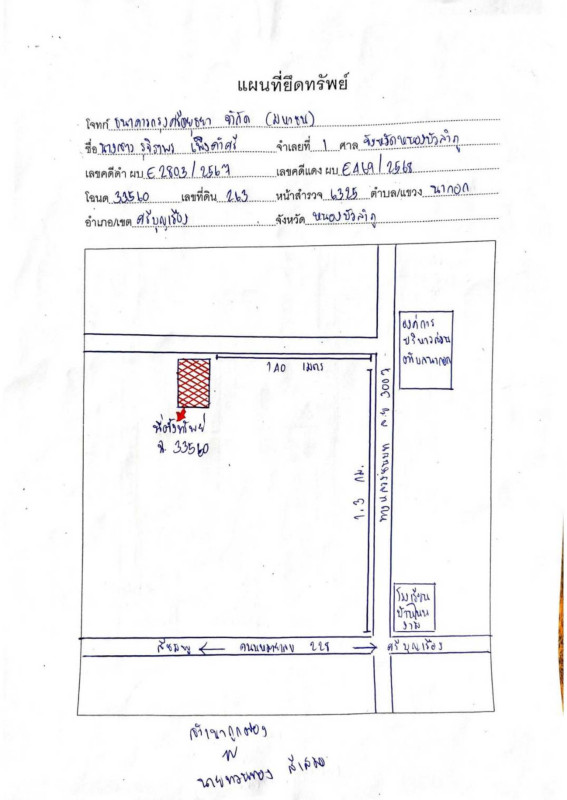 แผนที่ยึดทรัพย์
โจทก์ ธนาคารกรุงศรีอยุธยา จำกัด (มหาชน)
ชื่อ นางสาว รุจิราพร เพ็งคำศรี จำเลยที่ 1 ศาล จังหวัดหนองบัวลำภู
เลขคดีดำ ผบ E2803/2567 เลขคดีแดง ผบ E169/2568
โฉนด 33560 เลขที่ดิน 263 หน้าสำรวจ 6325 ตำบล/แขวง นากอก
อำเภอ/เขต ศรีบุญเรือง จังหวัด หนองบัวลำภู
องค์การ
บริหารส่วน
ตำบลนากอก
140 เมตร
ที่ตั้งทรัพย์
ฉ. 33560
1.3 กม.
ทางหลวงชนบท นภ 3007
โรงเรียน
บ้านโนน
งาม
สีชมพู ถนนหมายเลข 228 ศรีบุญเรือง
สำเนาถูกต้อง